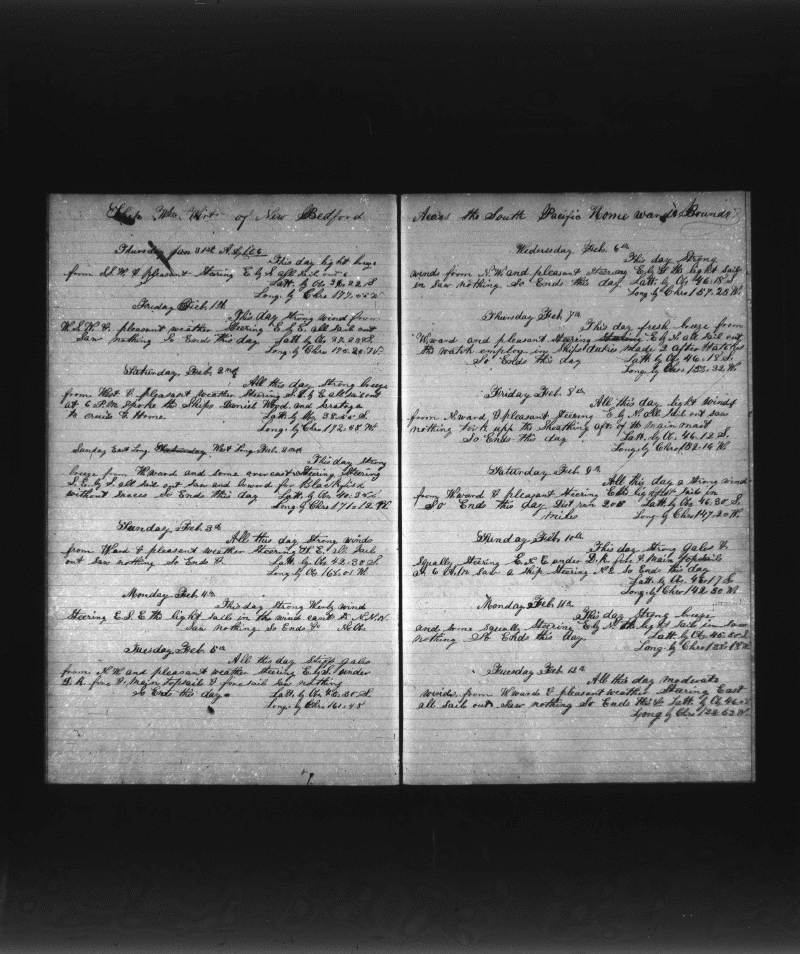 Ship Wm. Wirt of New Bedford
Thursday Jan 31st A.D. 1856
This day light breeze
from S.W. & pleasant Steering E by S all sail out
Latt. by Ob 38.22 S.
Long. by Chro 177.
Friday Feb. 1th
This day strong wind from
W.S.W. & pleasant weather Steering E by S. all sail out
Saw nothing So Ends this day Latt by Ob
Long by Chro 174. W.
Saturday Feb. 2nd
All this day strong breeze
from West & pleasant weather Steering S.E. by E all sail out
at 6 P.M. Spoke the Ships Daniel Wood and Saratoga
to cruise & Home Latt. by Ob 38. S.
Long. by Chro 172.48 W.
Sunday East Long. West Long. Feb. 2nd
This day strong
breeze from W.ward and some overcast Steering
S.E. by S. all sail out Saw and lowerd for Blackfish
without success So Ends this day Latt. by Ob 40. S.
Long by Chro 171.12 W.
Sunday Feb 3th
All this day Strong winds
from W.ward & pleasant weather Steering S.E. all Sail
out Saw nothing So Ends & Latt. by Ob 42.30 S.
Long. by Ob 168.01 W.
Monday Feb 4th
This day Strong Westly wind
Steering E.S.E. the light sails in the wind cant to N.N.W.
Saw nothing So Ends &c No Ob.
Tuesday Feb. 5th
All this day Stiff gales
from N.W. and pleasant weather Steering E. by S. under
D.R. fore & Main topsail & foresail saw nothing
So Ends this day Latt. by Ob S.
Long. by Chro 161.45
Across the South Pacific Homeward Bound
Wednesday Feb. 6th
This day Strong
winds from N.W. and pleasant Steering E. by S. the light sails
in saw nothing. So Ends this day Latt. by Ob. 46.18 S.
Long by Chro 157.28 W.
Thursday Feb. 7th
This day fresh breeze from
W.ward and pleasant Steering E by N. all sail out
the watch employ in Ships duties made 2 after Hatches
So Ends this day Latt by Ob. 46.18 S.
Long by Chro 32 W.
Friday Feb. 8th
All this day light winds
from N.ward & pleasant Steering E by N. All Sail out saw
nothing took upp the Sheathing aft. of the main mast
So Ends this day Latt. by Ob. 46.12 S.
Long. by Chro 152.14 W.
Saturday Feb 9th
All this day a strong wind
from W.ward & pleasant Steering East the light sails in
So Ends this day Dist ran 208 Latt. by Ob 46.30 S.
miles Long by Chro 147.20 W.
Sunday Feb. 10th
This day Strong Gales &
Squally Steering E.N.E. under D.R. fore & Main topsails
at 6 A.M. Saw a Ship Steering N.E. So Ends this day
Latt. by Ob. 46.17 S
Long by Chro 142.30 W.
Monday Feb 11th
This day strong breeze
and some squally Steering E by N. the light sails in saw
nothing So Ends this day Latt by Ob 46.50 S.
Long. by Chro 18 W.
Tuesday Feb. 12th
All this day moderate
winds from W.ward & pleasant weather Steering East
all sail out saw nothing So Ends this & Latt. by Ob 46.
Long by Chro 132.52 W.